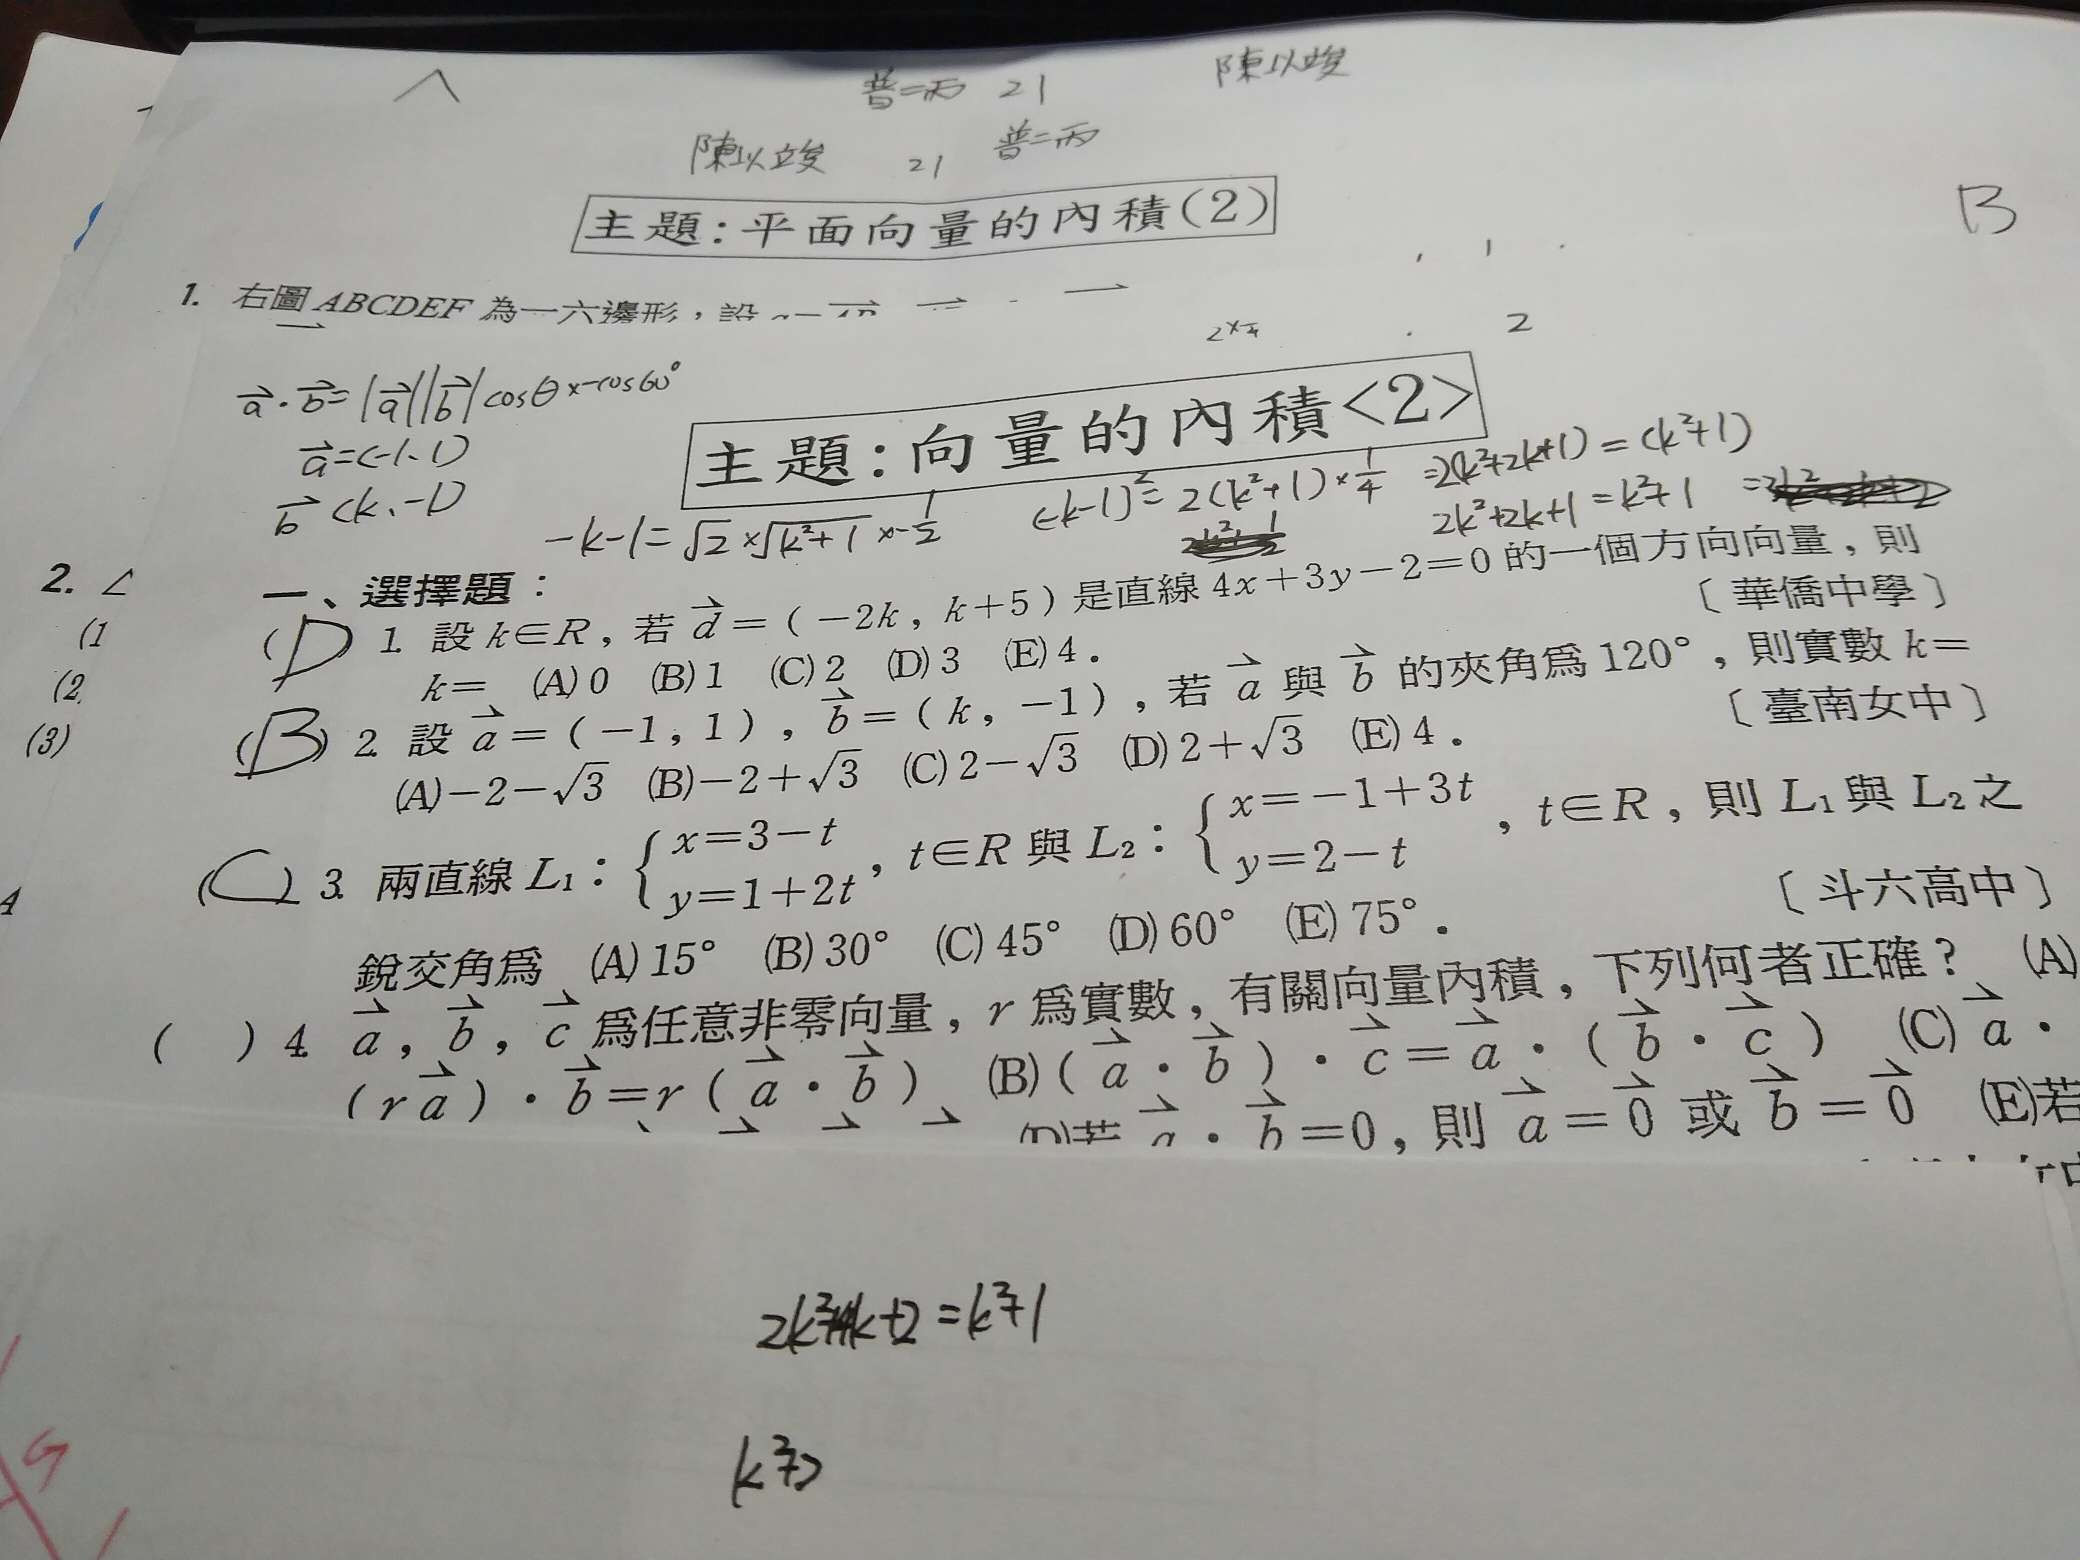 普二丙 21 陳以竣
陳以竣 21 普二丙
主題:平面向量的內積(2)
B
1. 右圖ABCDEF 為一六邊形,設
2
a·b=|a||b|cosθ×-cos60°
a=(-1、1)
b(k、-1)
主題:向量的內積<2>
-k-1=√2×√k²+1×-1/2
(-k-1)²=2(k²+1)×1/4
=2(k²+2k+1)=(k²+1)
2k²+2k+1=k²+1
2. ∠
(1
(2
(3)
4
一、選擇題:
(D) 1. 設 k∈R,若 d=(-2k,k+5)是直線 4x+3y-2=0 的一個方向向量,則
k= (A)0 (B)1 (C)2 (D)3 (E)4. 〔華僑中學〕
(B) 2. 設 a=(-1,1),b=(k,-1),若 a 與 b 的夾角爲 120°,則實數 k=
(A)-2-√3 (B)-2+√3 (C)2-√3 (D)2+√3 (E)4. 〔臺南女中〕
(C) 3. 兩直線 L₁:{x=3-t y=1+2t,t∈R 與 L₂:{x=-1+3t y=2-t,t∈R,則 L₁ 與 L₂ 之
銳交角爲 (A)15° (B)30° (C)45° (D)60° (E)75°. 〔斗六高中〕
( ) 4. a,b,c 爲任意非零向量,r 爲實數,有關向量內積,下列何者正確? (A)
(ra)·b=r(a·b) (B)(a·b)·c=a·(b·c) (C) a·
(D)若 a·b=0,則 a=0 或 b=0 (E)若
2k²+4k+2=k²+1
k²+